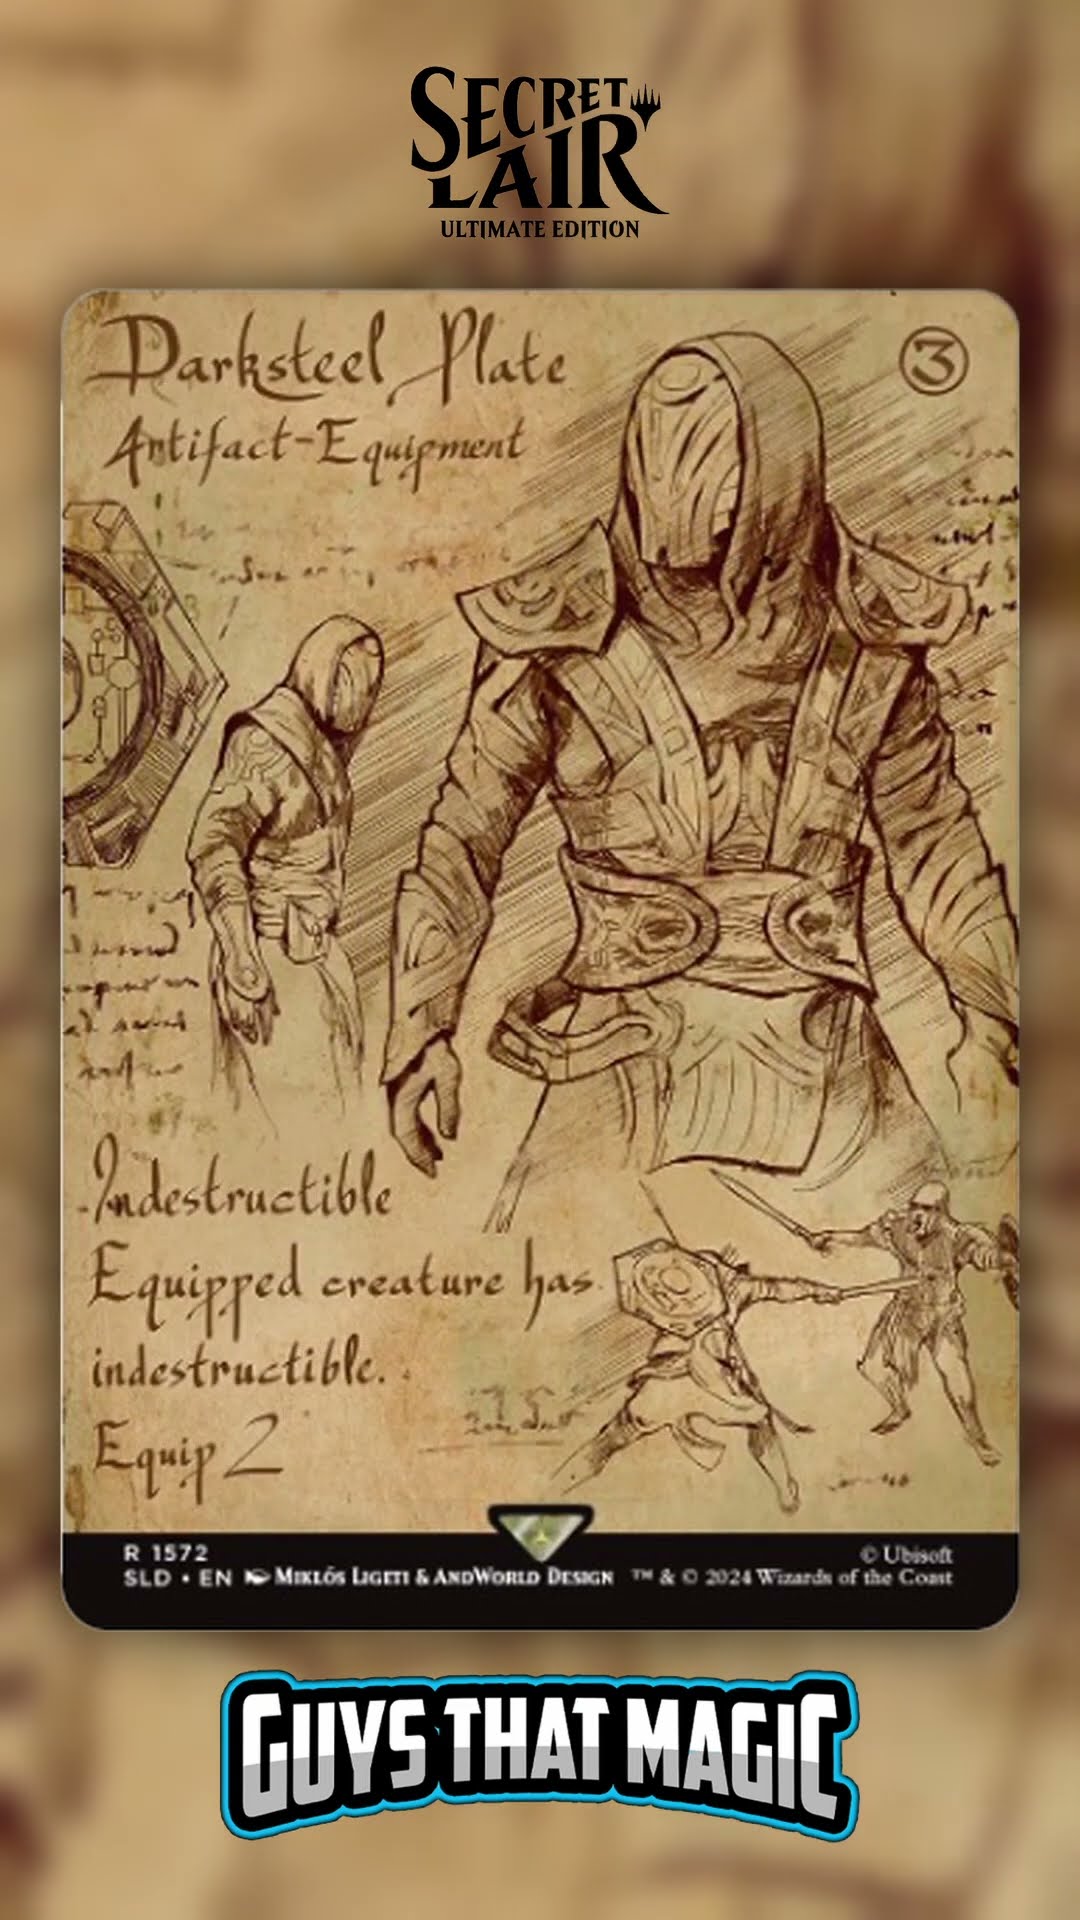 SECRET
LAIR
ULTIMATE EDITION
Darksteel Plate
3
Artifact-Equipment
Indestructible
Equipped creature has
indestructible.
Equip 2
R 1572
© Ubisoft
SLD • EN MIKLÓS LIGETI & ANDWORLD DESIGN ™ & © 2024 Wizards of the Coast
GUYS THAT MAGIC